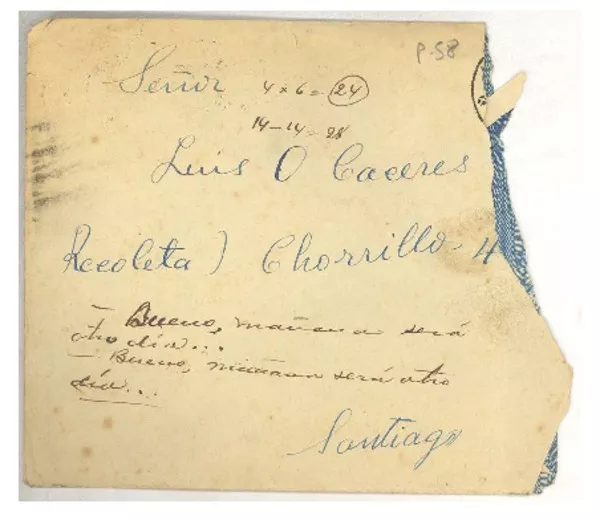 P. 58
Señor 4 x 6 = 24
14 - 14 = 28
Luis O Caceres
Recoleta) Chorrillo - 4
- Bueno, mañana será
otro día...
- Bueno, mañana será otro
día...
Santiago